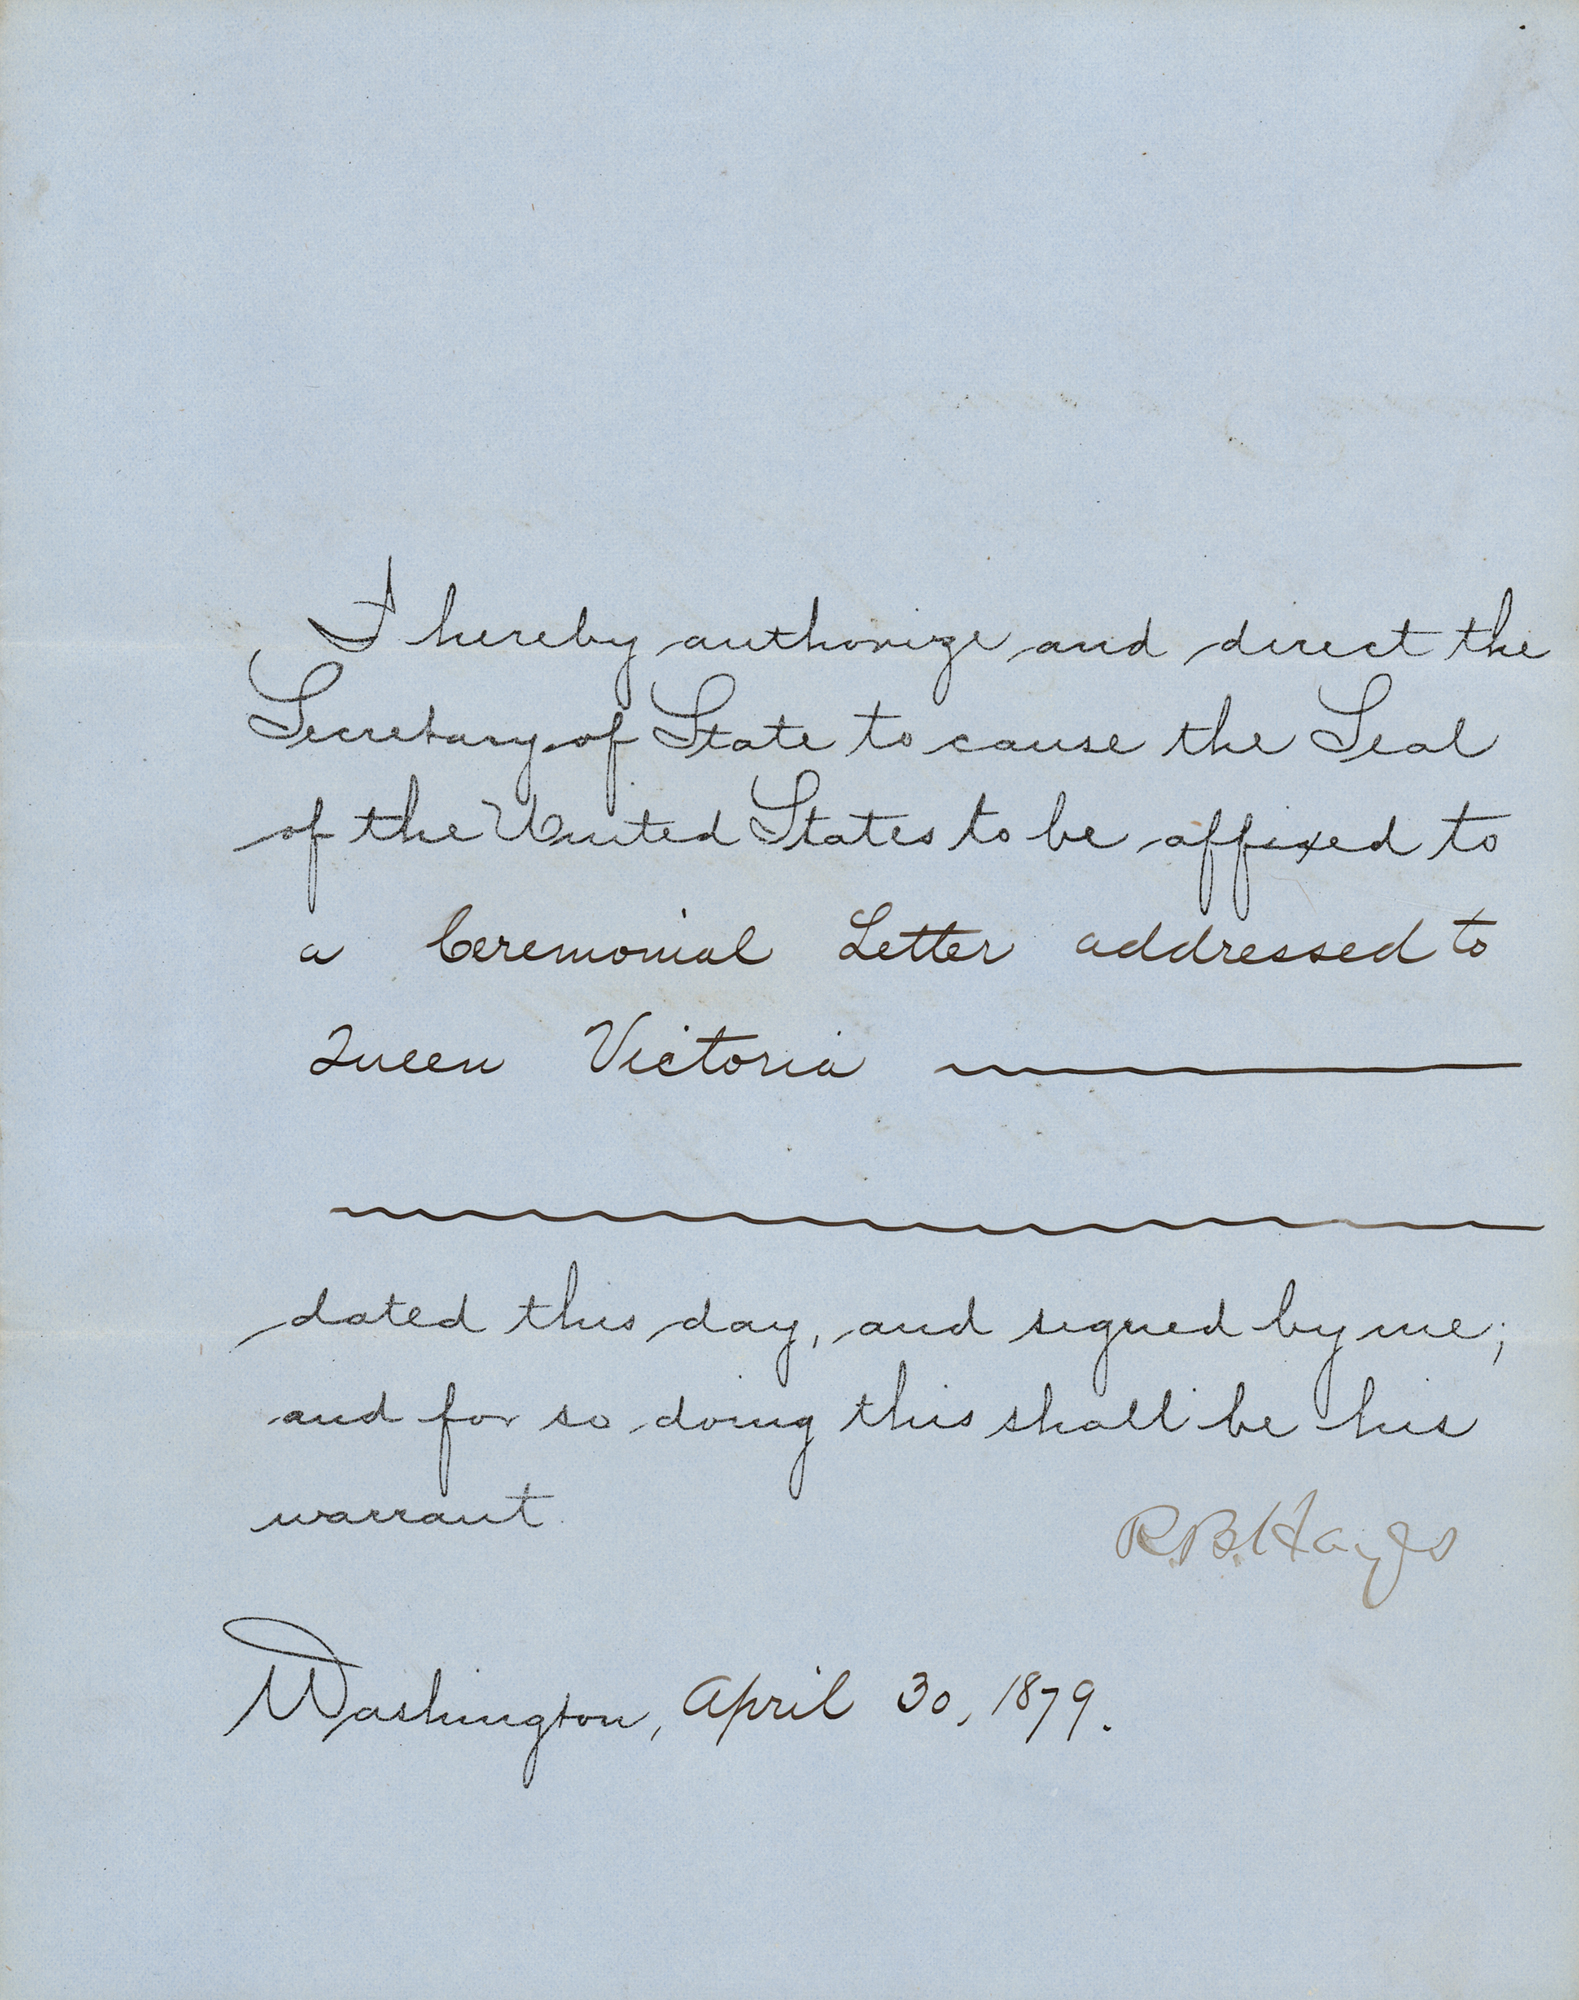 I hereby authorize and direct the
Secretary of State to cause the Seal
of the United States to be affixed to
a Ceremonial Letter addressed to
Queen Victoria
dated this day, and signed by me;
and for so doing this shall be his
warrant.
R.B. Hayes
Washington, April 30, 1879.